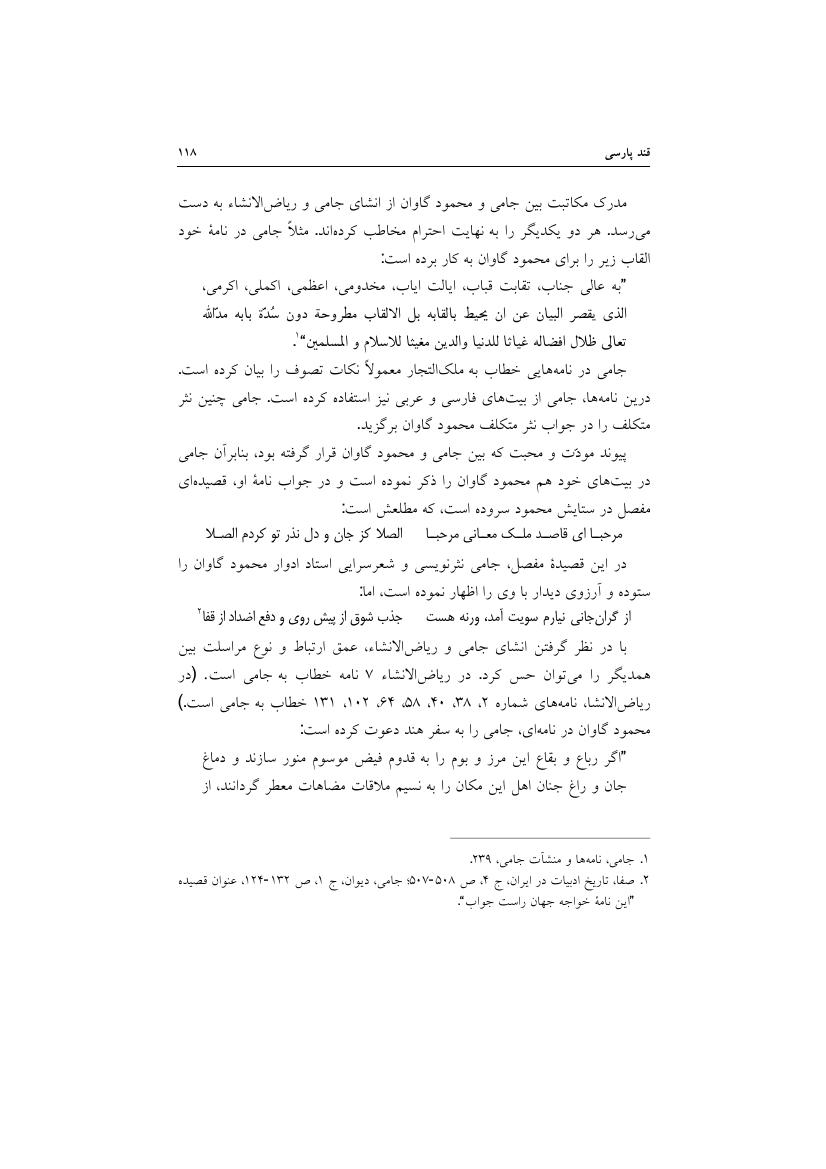 قند پارسی ۱۱۸
مدرک مکاتبت بین جامی و محمود گاوان از انشای جامی و ریاض‌الانشاء به دست
می‌رسد. هر دو یکدیگر را به نهایت احترام مخاطب کرده‌اند. مثلاً جامی در نامهٔ خود
القاب زیر را برای محمود گاوان به کار برده است:
"به عالی جناب، تقابت قباب، ایالت ایاب، مخدومی، اعظمی، اکملی، اکرمی،
الذی یقصر البیان عن ان یحیط بالقابه بل الالقاب مطروحة دون سُدّة بابه مدّالله
تعالی ظلال افضاله غیاثا للدنیا والدین مغیثا للاسلام و المسلمین"۱.
جامی در نامه‌هایی خطاب به ملک‌التجار معمولاً نکات تصوف را بیان کرده است.
درین نامه‌ها، جامی از بیت‌های فارسی و عربی نیز استفاده کرده است. جامی چنین نثر
متکلف را در جواب نثر متکلف محمود گاوان برگزید.
پیوند مودّت و محبت که بین جامی و محمود گاوان قرار گرفته بود، بنابرآن جامی
در بیت‌های خود هم محمود گاوان را ذکر نموده است و در جواب نامهٔ او، قصیده‌ای
مفصل در ستایش محمود سروده است، که مطلعش است:
مرحبـا ای قاصـد ملـک معـانی مرحبـا الصلا کز جان و دل نذر تو کردم الصـلا
در این قصیدهٔ مفصل، جامی نثرنویسی و شعرسرایی استاد ادوار محمود گاوان را
ستوده و آرزوی دیدار با وی را اظهار نموده است، اما:
از گران‌جانی نیارم سویت آمد، ورنه هست جذب شوق از پیش روی و دفع اضداد از قفا۲
با در نظر گرفتن انشای جامی و ریاض‌الانشاء، عمق ارتباط و نوع مراسلت بین
همدیگر را می‌توان حس کرد. در ریاض‌الانشاء ۷ نامه خطاب به جامی است. (در
ریاض‌الانشا، نامه‌های شماره ۲، ۳۸، ۴۰، ۵۸، ۶۴، ۱۰۲، ۱۳۱ خطاب به جامی است.)
محمود گاوان در نامه‌ای، جامی را به سفر هند دعوت کرده است:
"اگر رباع و بقاع این مرز و بوم را به قدوم فیض موسوم منور سازند و دماغ
جان و راغ جنان اهل این مکان را به نسیم ملاقات مضاهات معطر گردانند، از
۱. جامی، نامه‌ها و منشآت جامی، ۲۳۹.
۲. صفا، تاریخ ادبیات در ایران، ج ۴، ص ۵۰۸-۵۰۷؛ جامی، دیوان، ج ۱، ص ۱۳۲-۱۲۴، عنوان قصیده
"این نامهٔ خواجه جهان راست جواب".